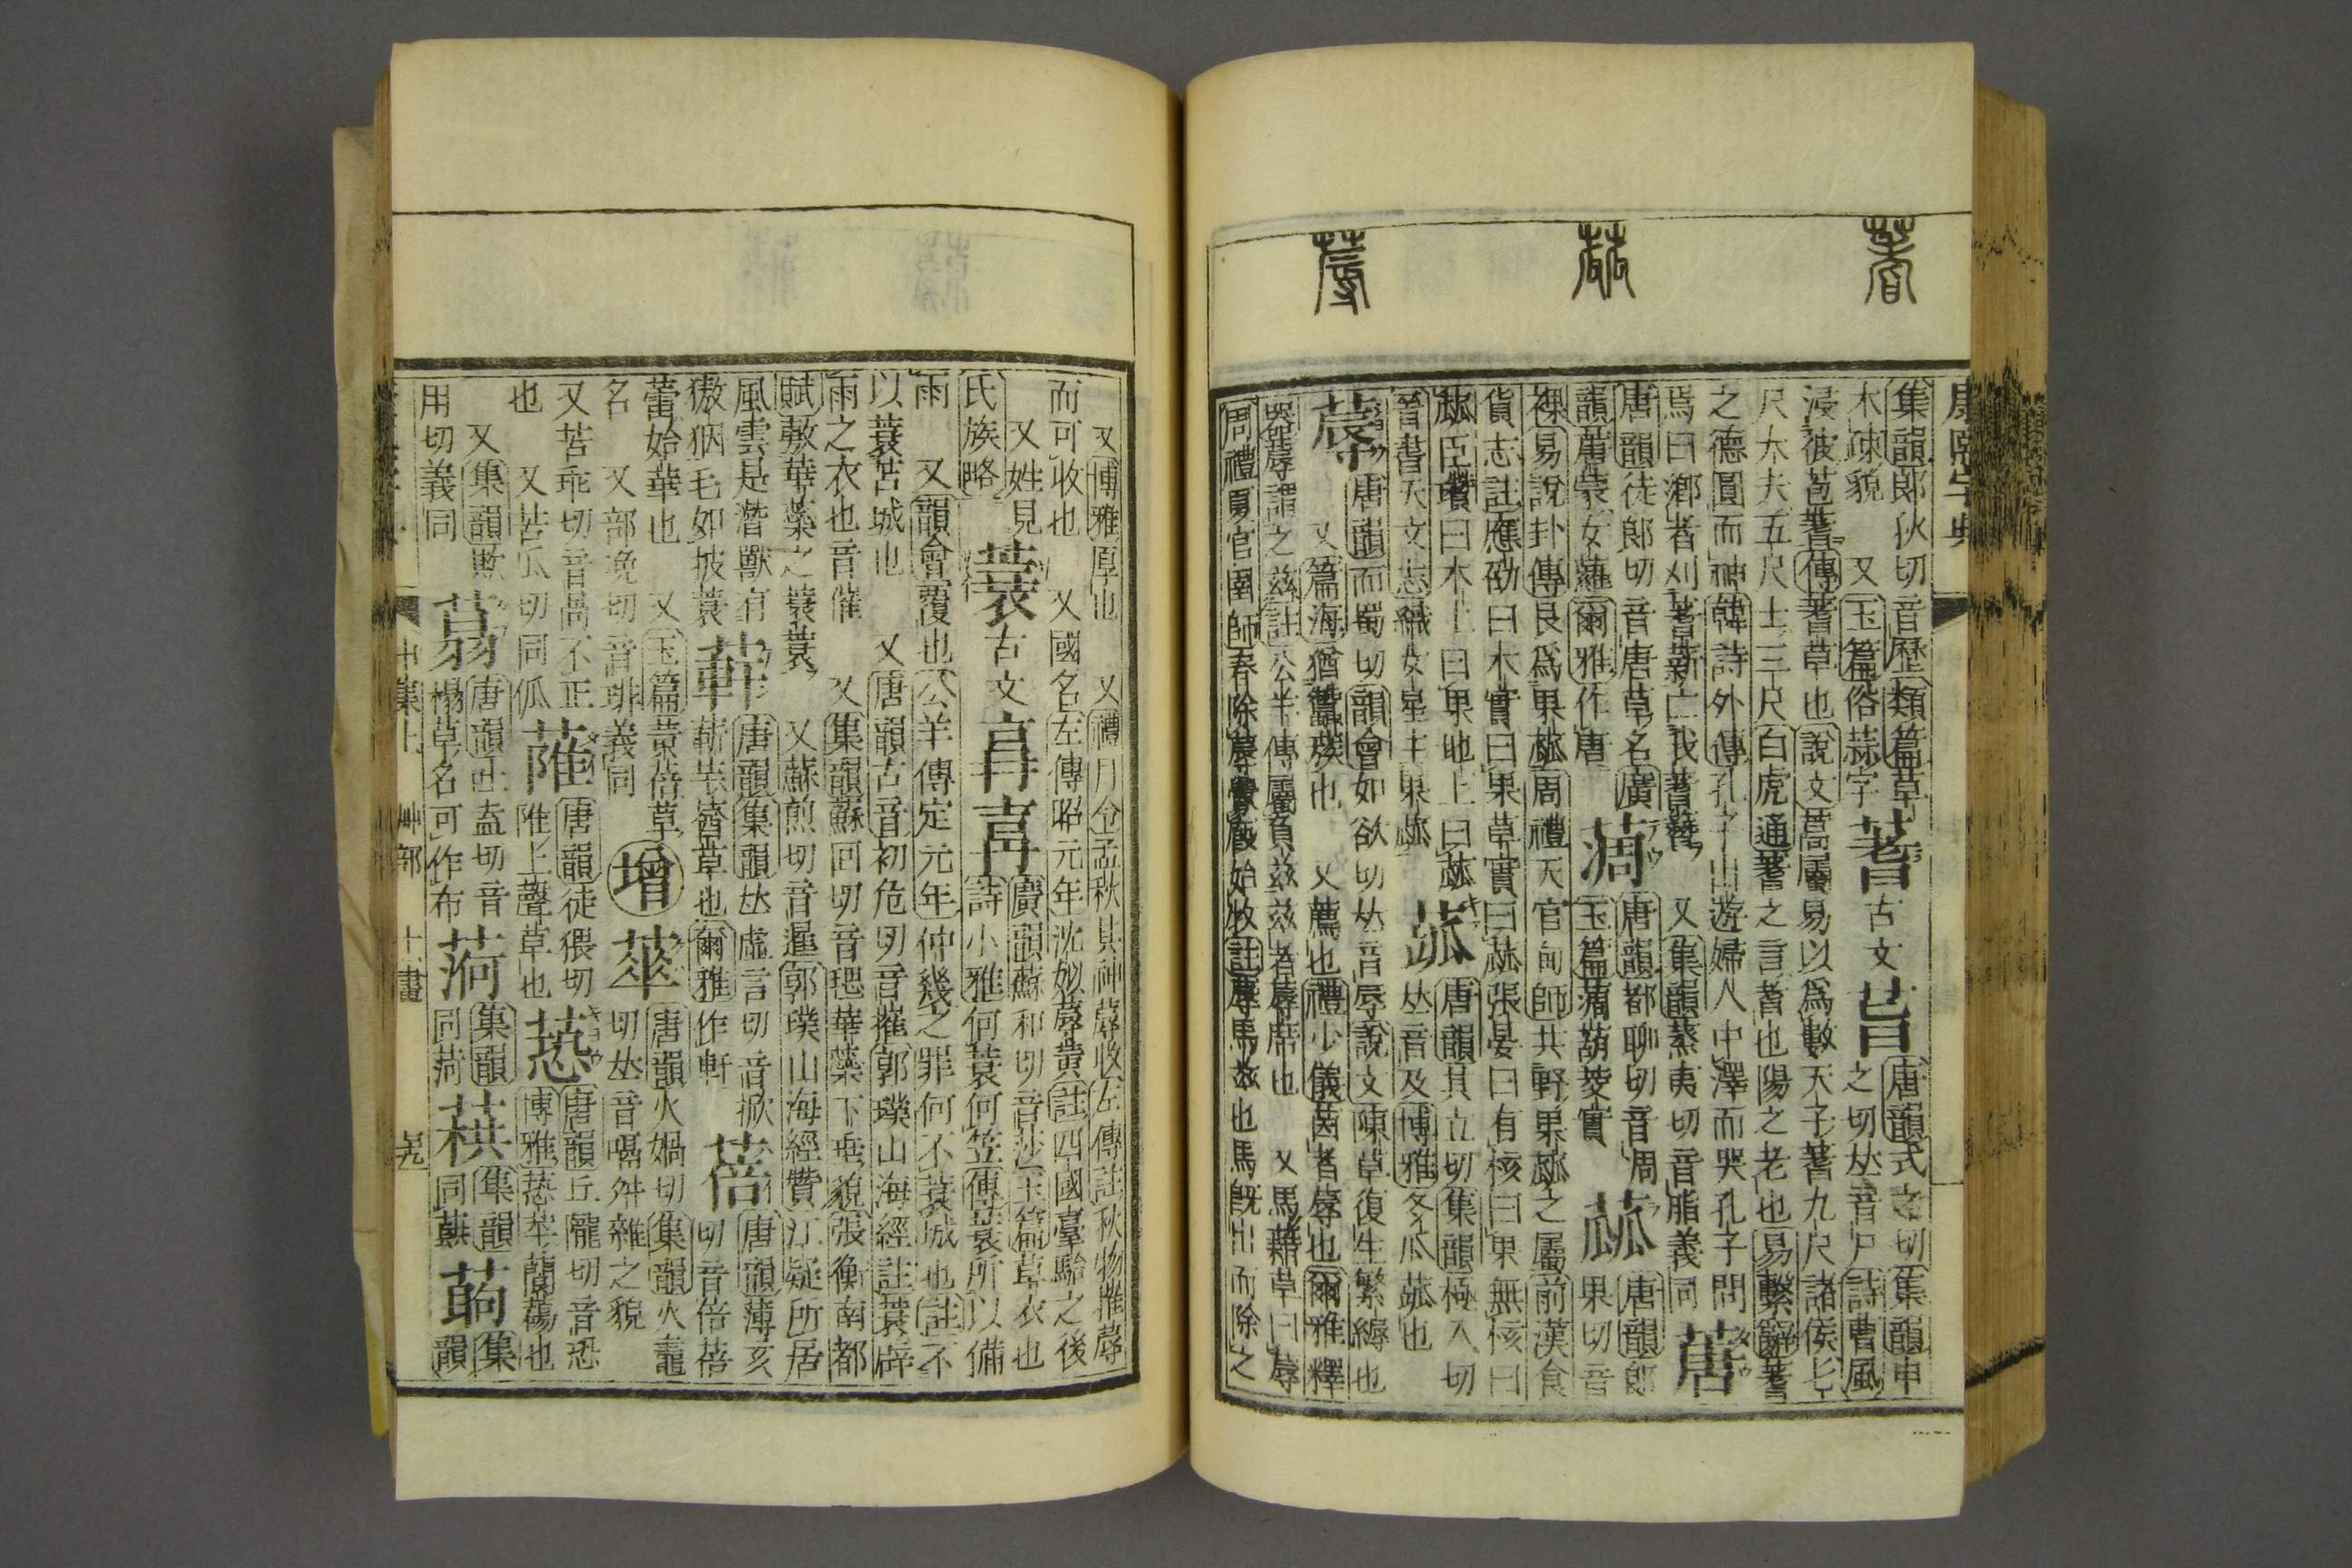 康熙字典
蓍
蓏
蓐
集韻郎狄切音歷類篇草
木疎貌 又玉篇俗蒜字
蓍
古文
唐韻式之切集韻申
之切𠀤音尸詩曹風
浸彼苞蓍傳蓍草也說文蒿屬易以爲數天子蓍九尺諸侯七
尺大夫五尺士三尺白虎通蓍之言耆也陽之老也易繫辭蓍
之德圓而神韓詩外傳孔子出遊婦人中澤而哭孔子問
焉曰鄕者刈蓍薪亡我蓍簪 又集韻蒸夷切音脂義同
蓎
唐韻徒郎切音唐草名廣
韻蓎蒙女蘿爾雅作唐
蔐
唐韻都聊切音凋
玉篇葫菱實
蓏
唐韻郎
果切音
裸易說卦傳艮爲果蓏周禮天官甸師共野果蓏之屬前漢食
貨志註應劭曰木實曰果草實曰蓏張晏曰有核曰果無核曰
蓏臣瓚曰木上曰果地上曰蓏
晉書天文志織女星主果蓏
唐韻其立切集韻極入切
𠀤音及博雅冬瓜蓏也
蓐
唐韻而蜀切韻會如欲切𠀤音辱說文陳草復生繁縟也
又篇海猶蠶蔟也 又薦也禮少儀茵者蓐也爾雅釋
器蓐謂之茲註公羊傳屬負茲茲者蓐席也 又馬藉草曰蓐
周禮夏官圉師春除蓐釁廄始牧註蓐馬茲也馬旣出而除之
又博雅厚也 又禮月令孟秋其神蓐收左傳註秋物摧蓐
而可收也 又國名左傳昭元年沈姒蓐黃註四國臺駘之後
又姓見
氏族略
蓑
古文
廣韻蘇和切音莎玉篇草衣也
詩小雅何蓑何笠傳蓑所以備
雨 又韻會覆也公羊傳定元年仲幾之罪何不蓑城也註不
以蓑苫城也 又唐韻古音初危切音摧郭璞山海經註蓑辟
雨之衣也音催 又集韻蘇回切音毸華蘂下垂貌張衡南都
賦敷華蘂之蓑蓑 又蘇煎切音暹郭璞山海經贊江疑所居
風雲是潛獸有
獓㹶毛如披蓑
蓒
唐韻集韻𠀤虛言切音掀
蘄芸齊草也爾雅作軒
蓓
唐韻薄亥
切音倍蓓
蕾始華也 又玉篇黃蓓草
名 又部浼切音琲義同
增
唐韻火媧切集韻火鼃
切𠀤音咼舛雜之貌
又苦乖切音咼不正
也 又苦瓜切同㼌
唐韻徒猥切
陮上聲草也
唐韻丘隴切音恐
博雅蘭蕩也
又集韻歎
用切義同
蒻
唐韻吐盍切音
榻草名可作布
集韻
同荷
集韻
同蕻
集
韻
申集上 艸部 十畫